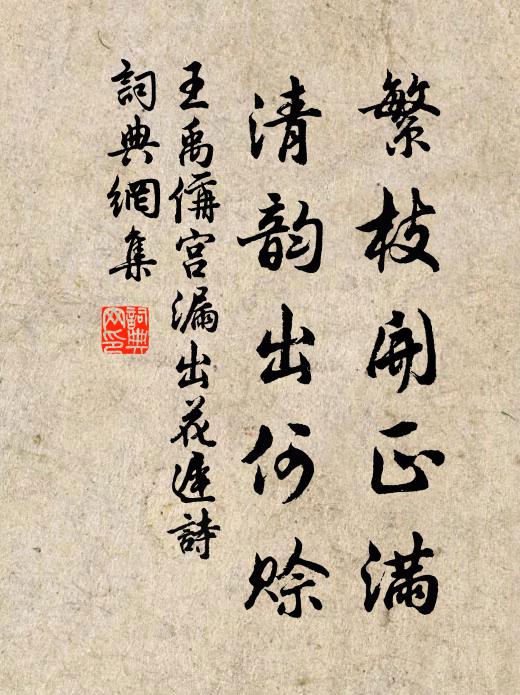 繁枝開正滿
清韵出何賒
王禹偁宮漏出花遲詩
詞典網集
詞典網印